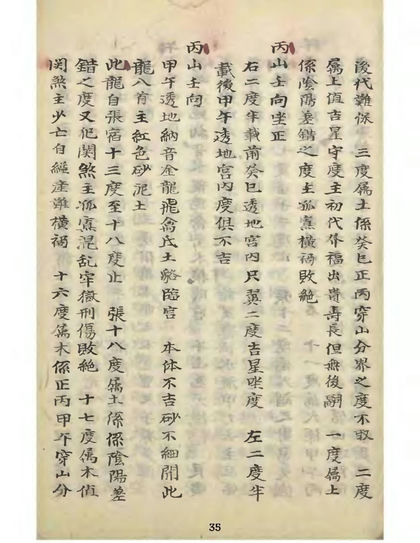 後代難保　三度属土係癸巳正丙穿山分界之度不取　二度
属上值吉星守度主初代發福出貴壽長但無後嗣　一度属土
係陰陽差錯之度主孤寡橫禍敗絶
丙山壬向坐正
右二度半載前癸巳透地宮内只翼二度吉星坐度　左二度半
載後甲午透地宮内度俱不吉
丙山壬向
甲午透地納音金龍飛禽氐土貉臨宮　本体不吉砂不細開此
龍八育主紅色砂泥土
此龍自張宿十三度至十八度止　張十八度属土係係陰陽差
錯之度又犯関煞主孤寡混乱牢獄刑傷敗絶　十七度属木值
関煞主少亡自縊產難橫禍　十六度属木係正丙甲午穿山分
35